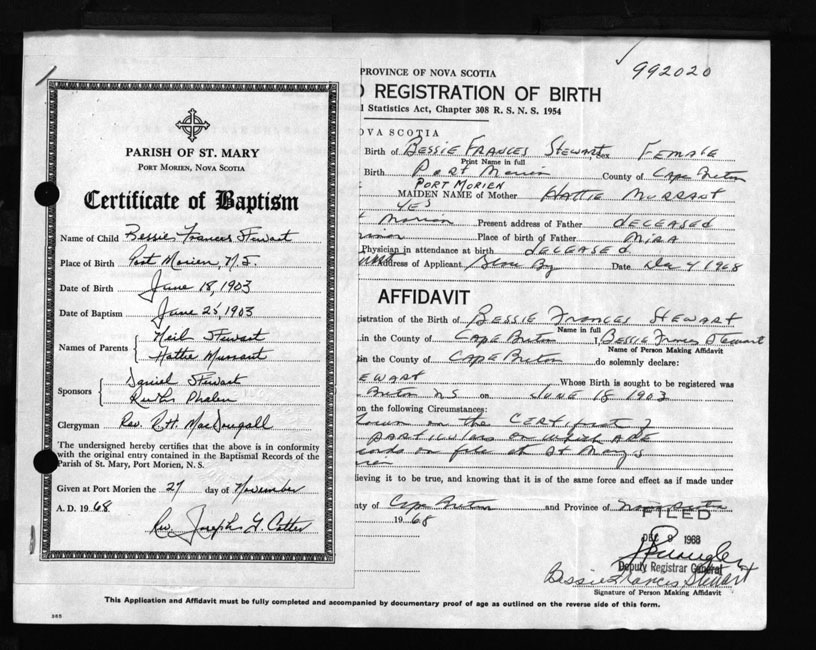 PARISH OF ST. MARY
PORT MORIEN, NOVA SCOTIA
Certificate of Baptism
Name of Child Bessie Frances Stewart
Place of Birth Port Morien, N.S.
Date of Birth June 18, 1903
Date of Baptism June 25, 1903
Names of Parents { Neil Stewart
Hattie Murrant
Sponsors { Daniel Stewart
Phalen
Clergyman Rev. R.H. MacDougall
The undersigned hereby certifies that the above is in conformity
with the original entry contained in the Baptismal Records of the
Parish of St. Mary, Port Morien, N. S.
Given at Port Morien the 27 day of November
A. D. 1968
Rev. Joseph
992020
PROVINCE OF NOVA SCOTIA
D REGISTRATION OF BIRTH
l Statistics Act, Chapter 308 R. S. N. S. 1954
OVA SCOTIA
Birth of BESSIE FRANCES STEWART Sex FEMALE
Print Name in full
Birth Port Morien County of Cape Breton
PORT MORIEN
MAIDEN NAME of Mother HATTIE MURRANT
YES
Morien Present address of Father DECEASED
Place of birth of Father MIRA
Physician in attendance at birth DECEASED
Address of Applicant Glace Bay Date Dec 4 1968
AFFIDAVIT
gistration of the Birth of BESSIE FRANCES STEWART
Name in full
in the County of CAPE BRETON I, BESSIE Frances Stewart
Name of Person Making Affidavit
in the County of CAPE BRETON do solemnly declare:
EWART Whose Birth is sought to be registered was
Breton NS on JUNE 18 1903
on the following Circumstances:
on the CERTIFICATE of
PARTICULARS on which ARE
on file at St Mary's
lieving it to be true, and knowing that it is of the same force and effect as if made under
ty of Cape Breton and Province of Nova Scotia
1968
FILED
DEC 9 1968
Deputy Registrar General
Bessie Frances Stewart
Signature of Person Making Affidavit
This Application and Affidavit must be fully completed and accompanied by documentary proof of age as outlined on the reverse side of this form.